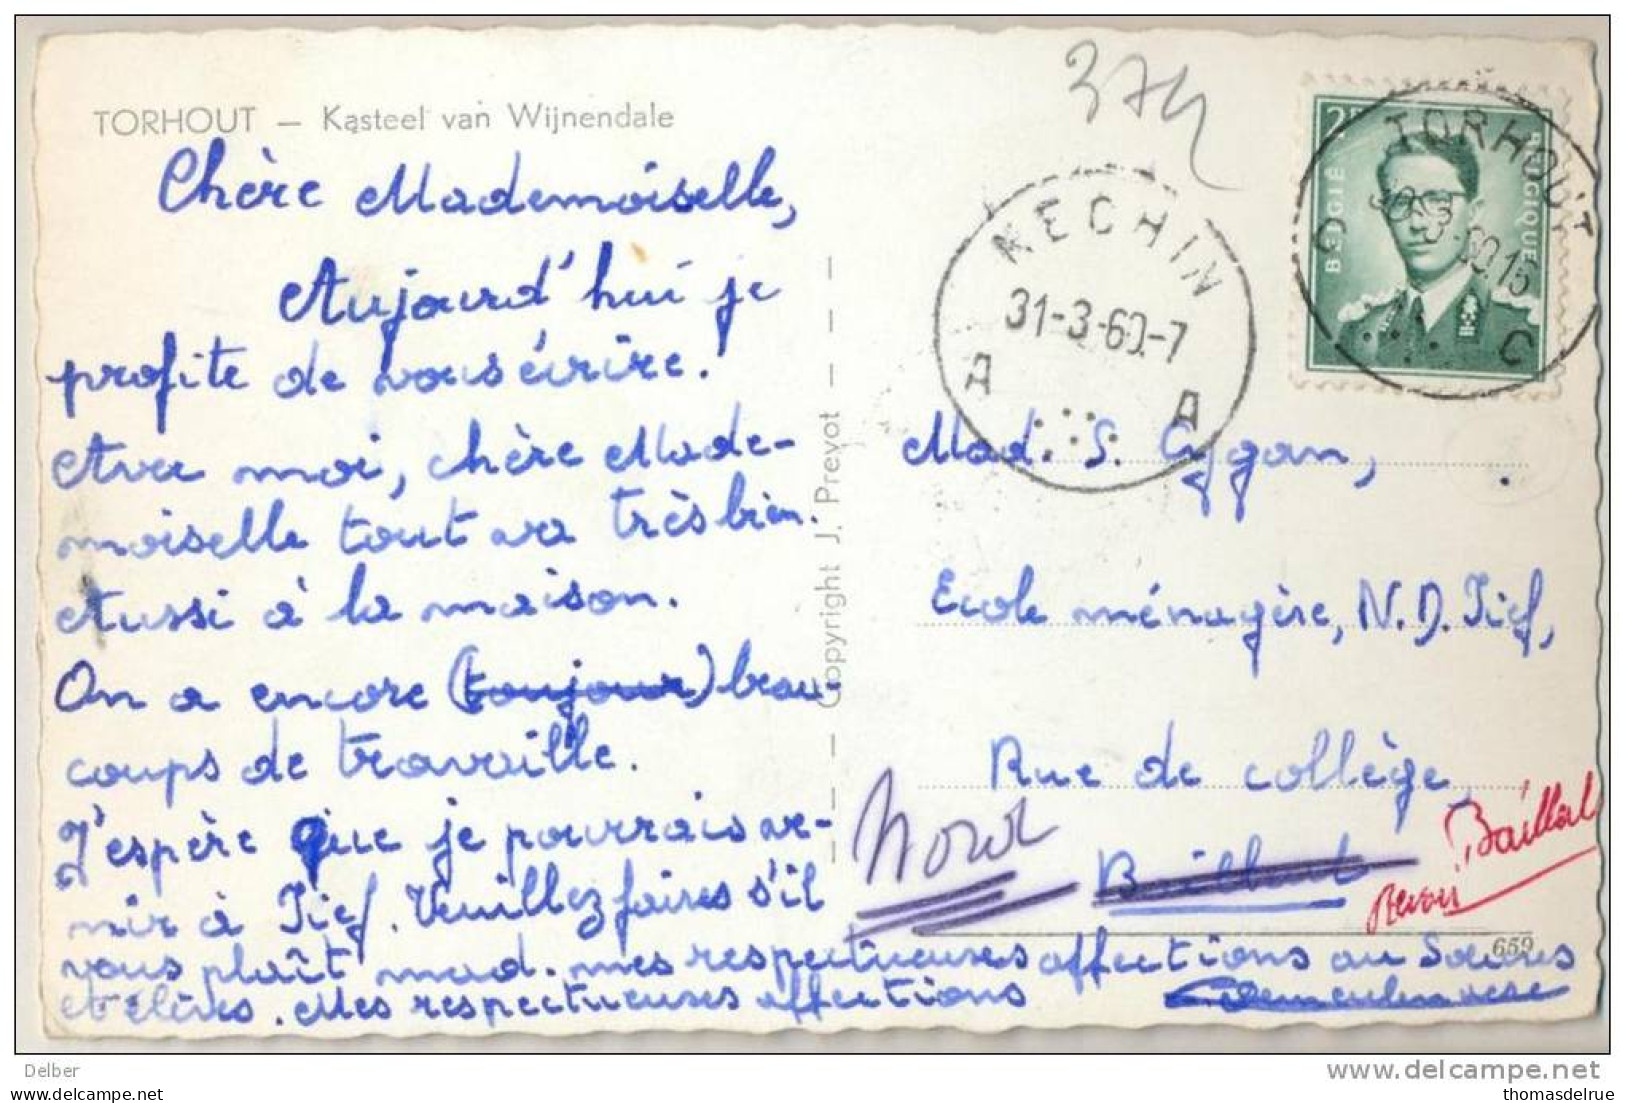 TORHOUT — Kasteel van Wijnendale
374
Chère Mademoiselle,
Aujourd'hui je
profite de vous écrire.
Avec moi, chère Made-
moiselle tout va très bien.
Aussi à la maison.
On a encore (toujour) beau-
coups de travaille.
J'espère que je pourrais ve-
nir à Tief. Veuillez faires s'il
vous plaît mad. mes respectueuses affections au Soeurs
et élèves. Mes respectueuses affections
Copyright J. Prevot
NECHIN
31-3-60.-7
A A
TORHOUT
30.-3.-60.15
C C
2F
BELGIË
BELGIQUE
Mad. S. Cygan,
Ecole ménagère, N.D. Tief,
Rue de collège
Nord
Bailleul
Bailleul
659
Delber
www.delcampe.net
thomasdelrue